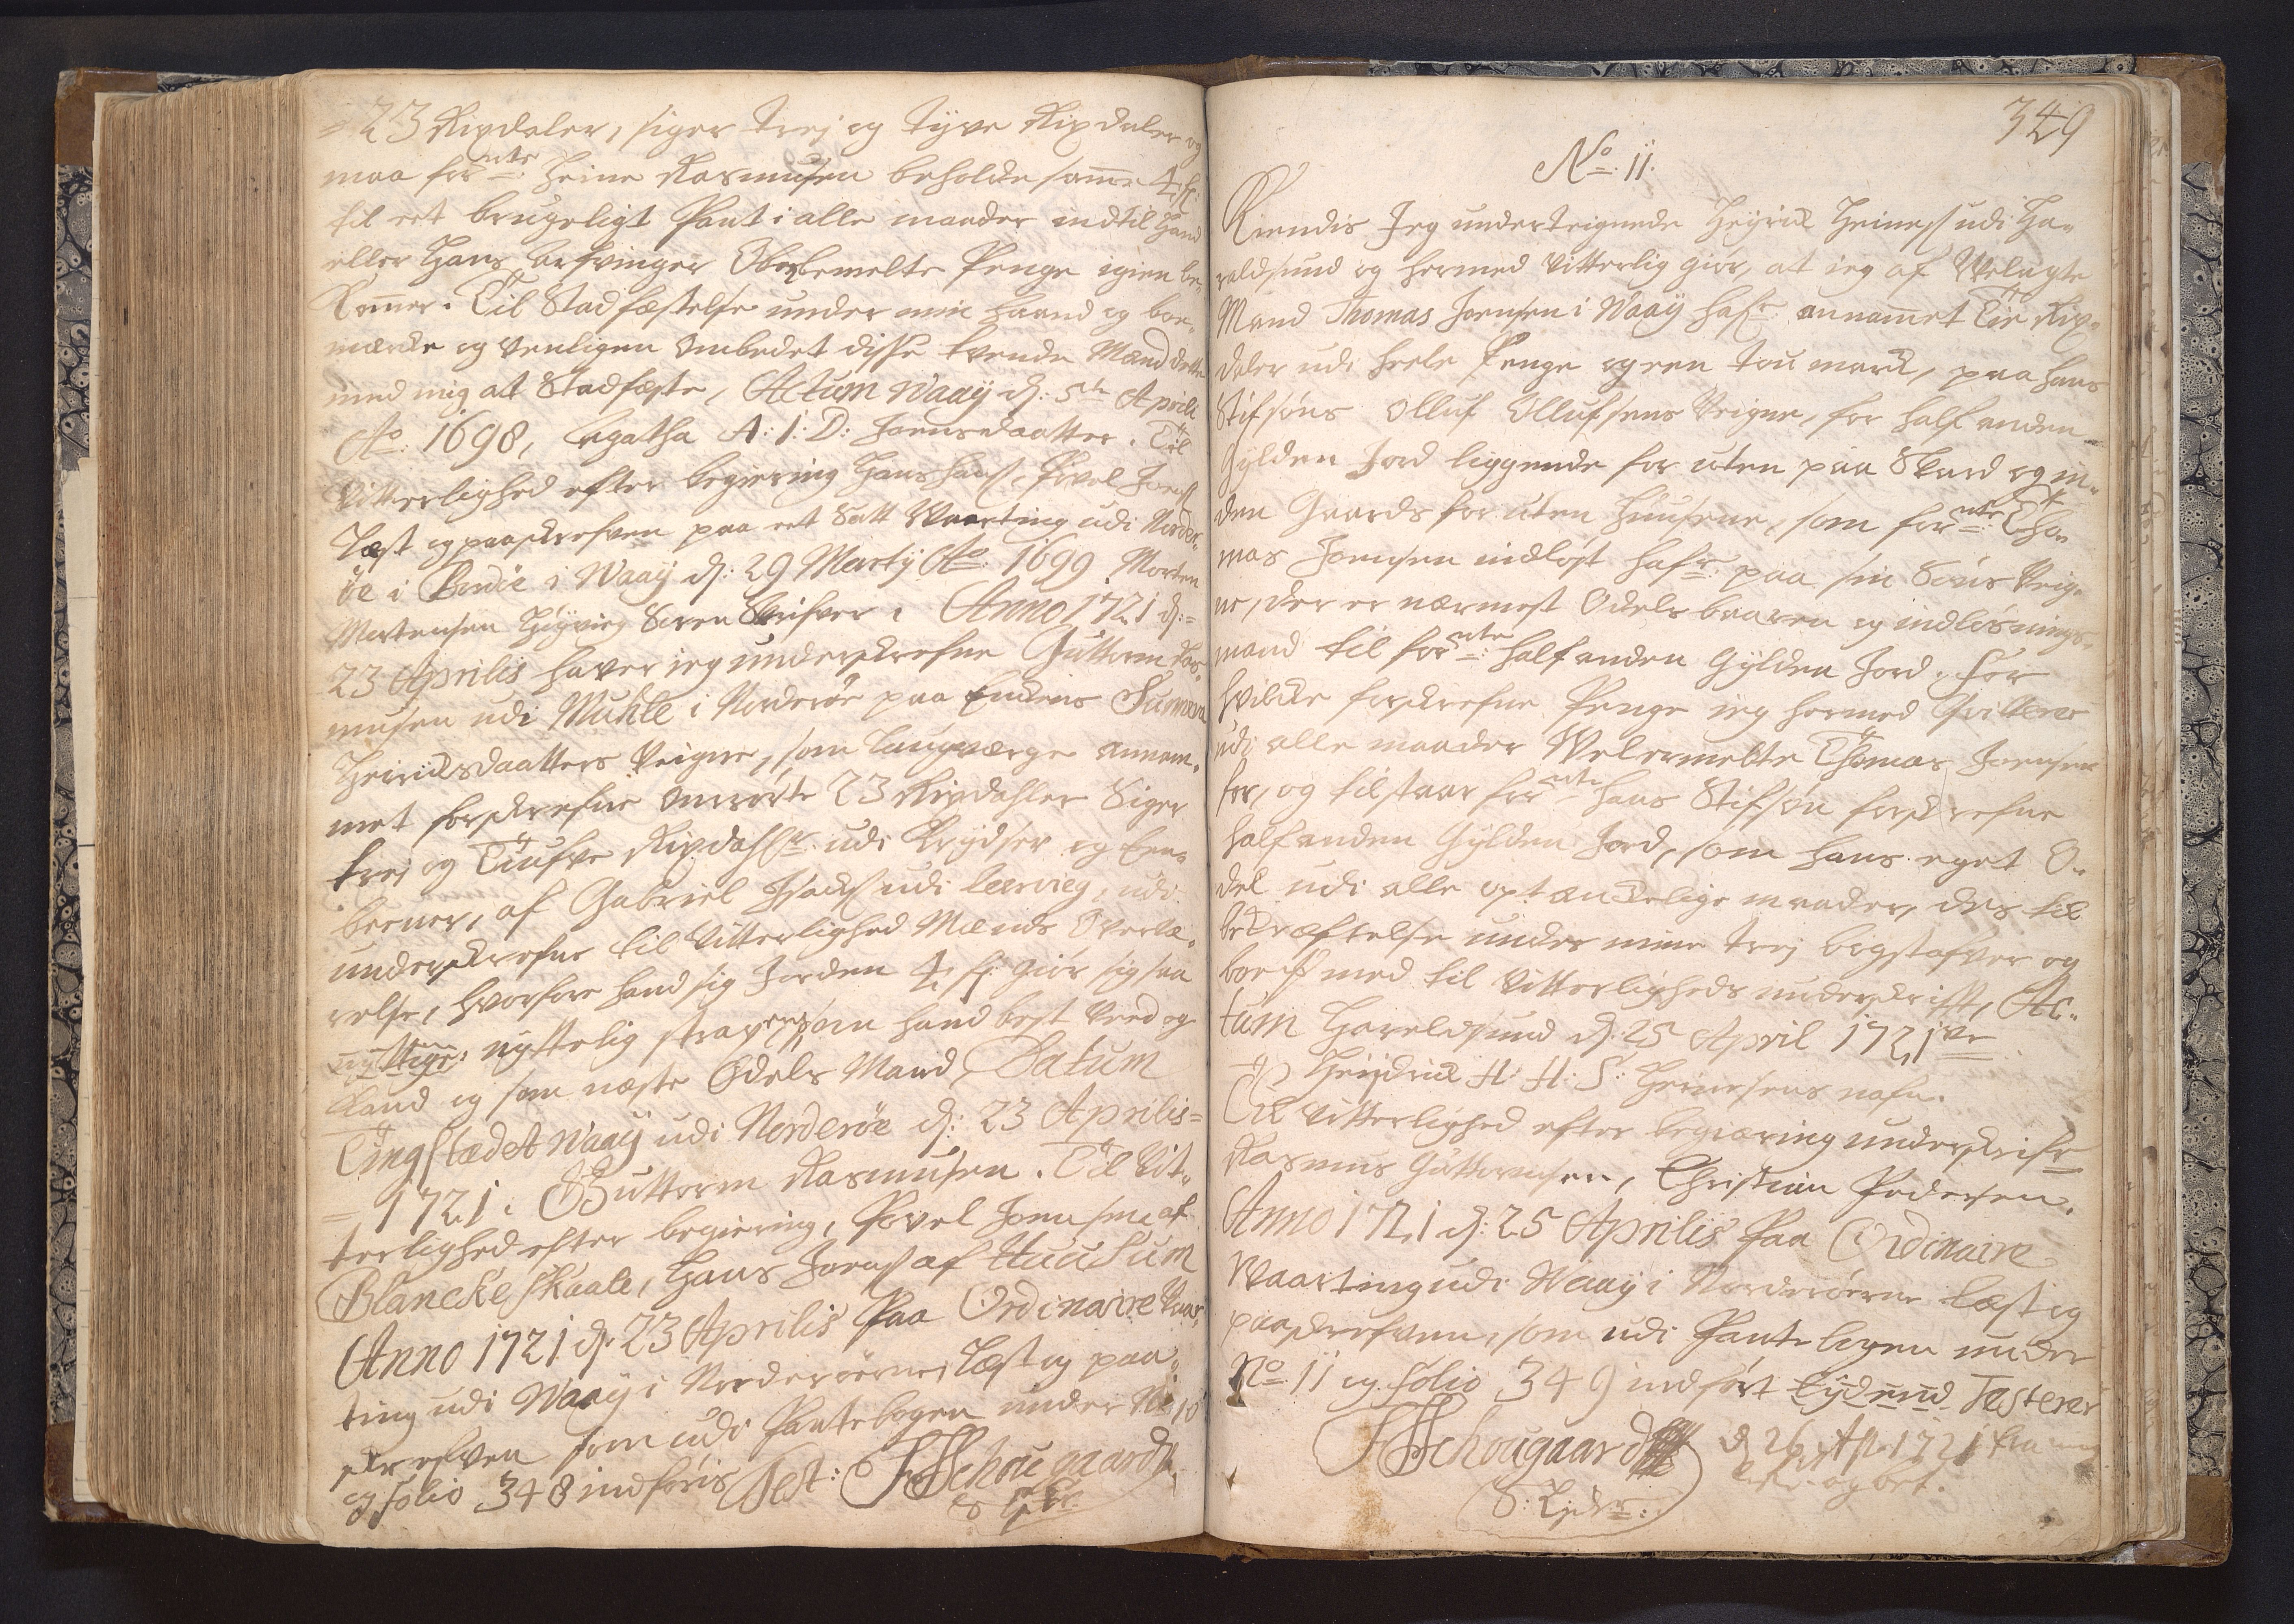 23 Rixdaler, siger trej og tÿve Rixdaler og
maa fornte: Heine Rasmusen beholde same 4 
til eet brugeligt Pant i alle maader indtil Hand
eller Hans Arfvinger Obenbemelte Penge igien be-
komer. Til Stadfæstelse under min haand og boe-
mærcke og venligen ombedet disse tvende Mænd dette
med mig at Stadfæste, Actum Waaÿ d: 5te Aprili
Ao: 1698, Agatha A: I: D: Joensdaatter. Til
Vitterlighed efter begiering Hans Hanss, Povel Joenss
Læst og paaskrefven paa eet Satt Waarting udi Norder-
öe i Bordöe i Waaÿ d: 29 Martÿ Ao: 1699. Morten
Mortensen Hÿgvieg Soren Skrifver. Anno 1721 d:=
23 Aprilis haver ieg underskrefne Guttorm Ras-
musen udi Muhle i Norderöe paa Enckens Sunneva
Heinriksdaatters Veigne, som Laugværge annam-
met forskrefne Omrörte 23 Rixdahler Siger
trej og Tiufve Rixdahlr: udi Krÿdser og Een-
kroner, af Gabriel Isachss udi leervieg, udi
underskrefne til Vitterlighed Mænds Overvæ-
relse, hvorfore hand sig Jorden 4 giör sig saa
nyttige: nÿttelig strax som hand best Veed og
kand og som næste Odels Mand, Datum
TingStædet Waaÿ udi Norderöe d: 23 Aprilis=
= 1721. Guttorm Rasmusen. Til Vit-
terlighed efter begiering, Povel Joensen af
Blanckeskaale, Hans Joenss af Huusum
Anno 1721 d: 23 Aprilis Paa Ordinaire Vaar-
ting udi Waaÿ i Norderöerne, Læst og paa-
skrefven som udi Pantebogen under No 10
og folio 348 indföris Test: JHSchougaard
349
No: 11.
Kiendis Jeg underteignede Heÿrik Heiness udi Ha-
raldsund og hermed Vitterlig giör, at ieg af Velagte
Mand Thomas Joensen i Waaÿ hafr: annamet Tie Rix-
daler udi heele Penge og een tou marck, paa hans
Stifsöns Olluf Ollufsens Veigne, for half anden
Gÿlden Jord liggende for uten paa Skard og in-
den Gaards for uten Huusene, som fornte: Tho-
mas Joensen indlöst hafr: paa sin Söns Veig-
ne, der er nærmest Odelsbaaren og indlösnings-
mand til fornte: half anden Gÿlden Jord. For
hvilcke forskrefne Penge ieg hermed Qvitterer
udi alle maader Velermelte Thomas Joensen
for, og tilstaar fornte hans Stifsön forskrefne
half anden Gÿlden Jord, som hans eget O-
del udi alle optænckelige maader, dis til
bekræftelse under mine trej bogstafver og
boe med til Vitterligheds underskrifft, Ac-
tum Haraldsund d: 25 April 1721
Heÿdrik H: H: S: Heinesens nafn.
Til Vitterlighed efter begiæring underskrifr
Rasmus Guttormsen, Christian Pedersen.
Anno 1721 d: 25 Aprilis Paa Ordinaire
Waarting udi Waaÿ i Norderöerne Læst og
paaskrefven, som udi Pantebogen under
No: 11 og folio 349 indfört Testerer
JHSchougaard d 26 Ap. 1721
og bet.